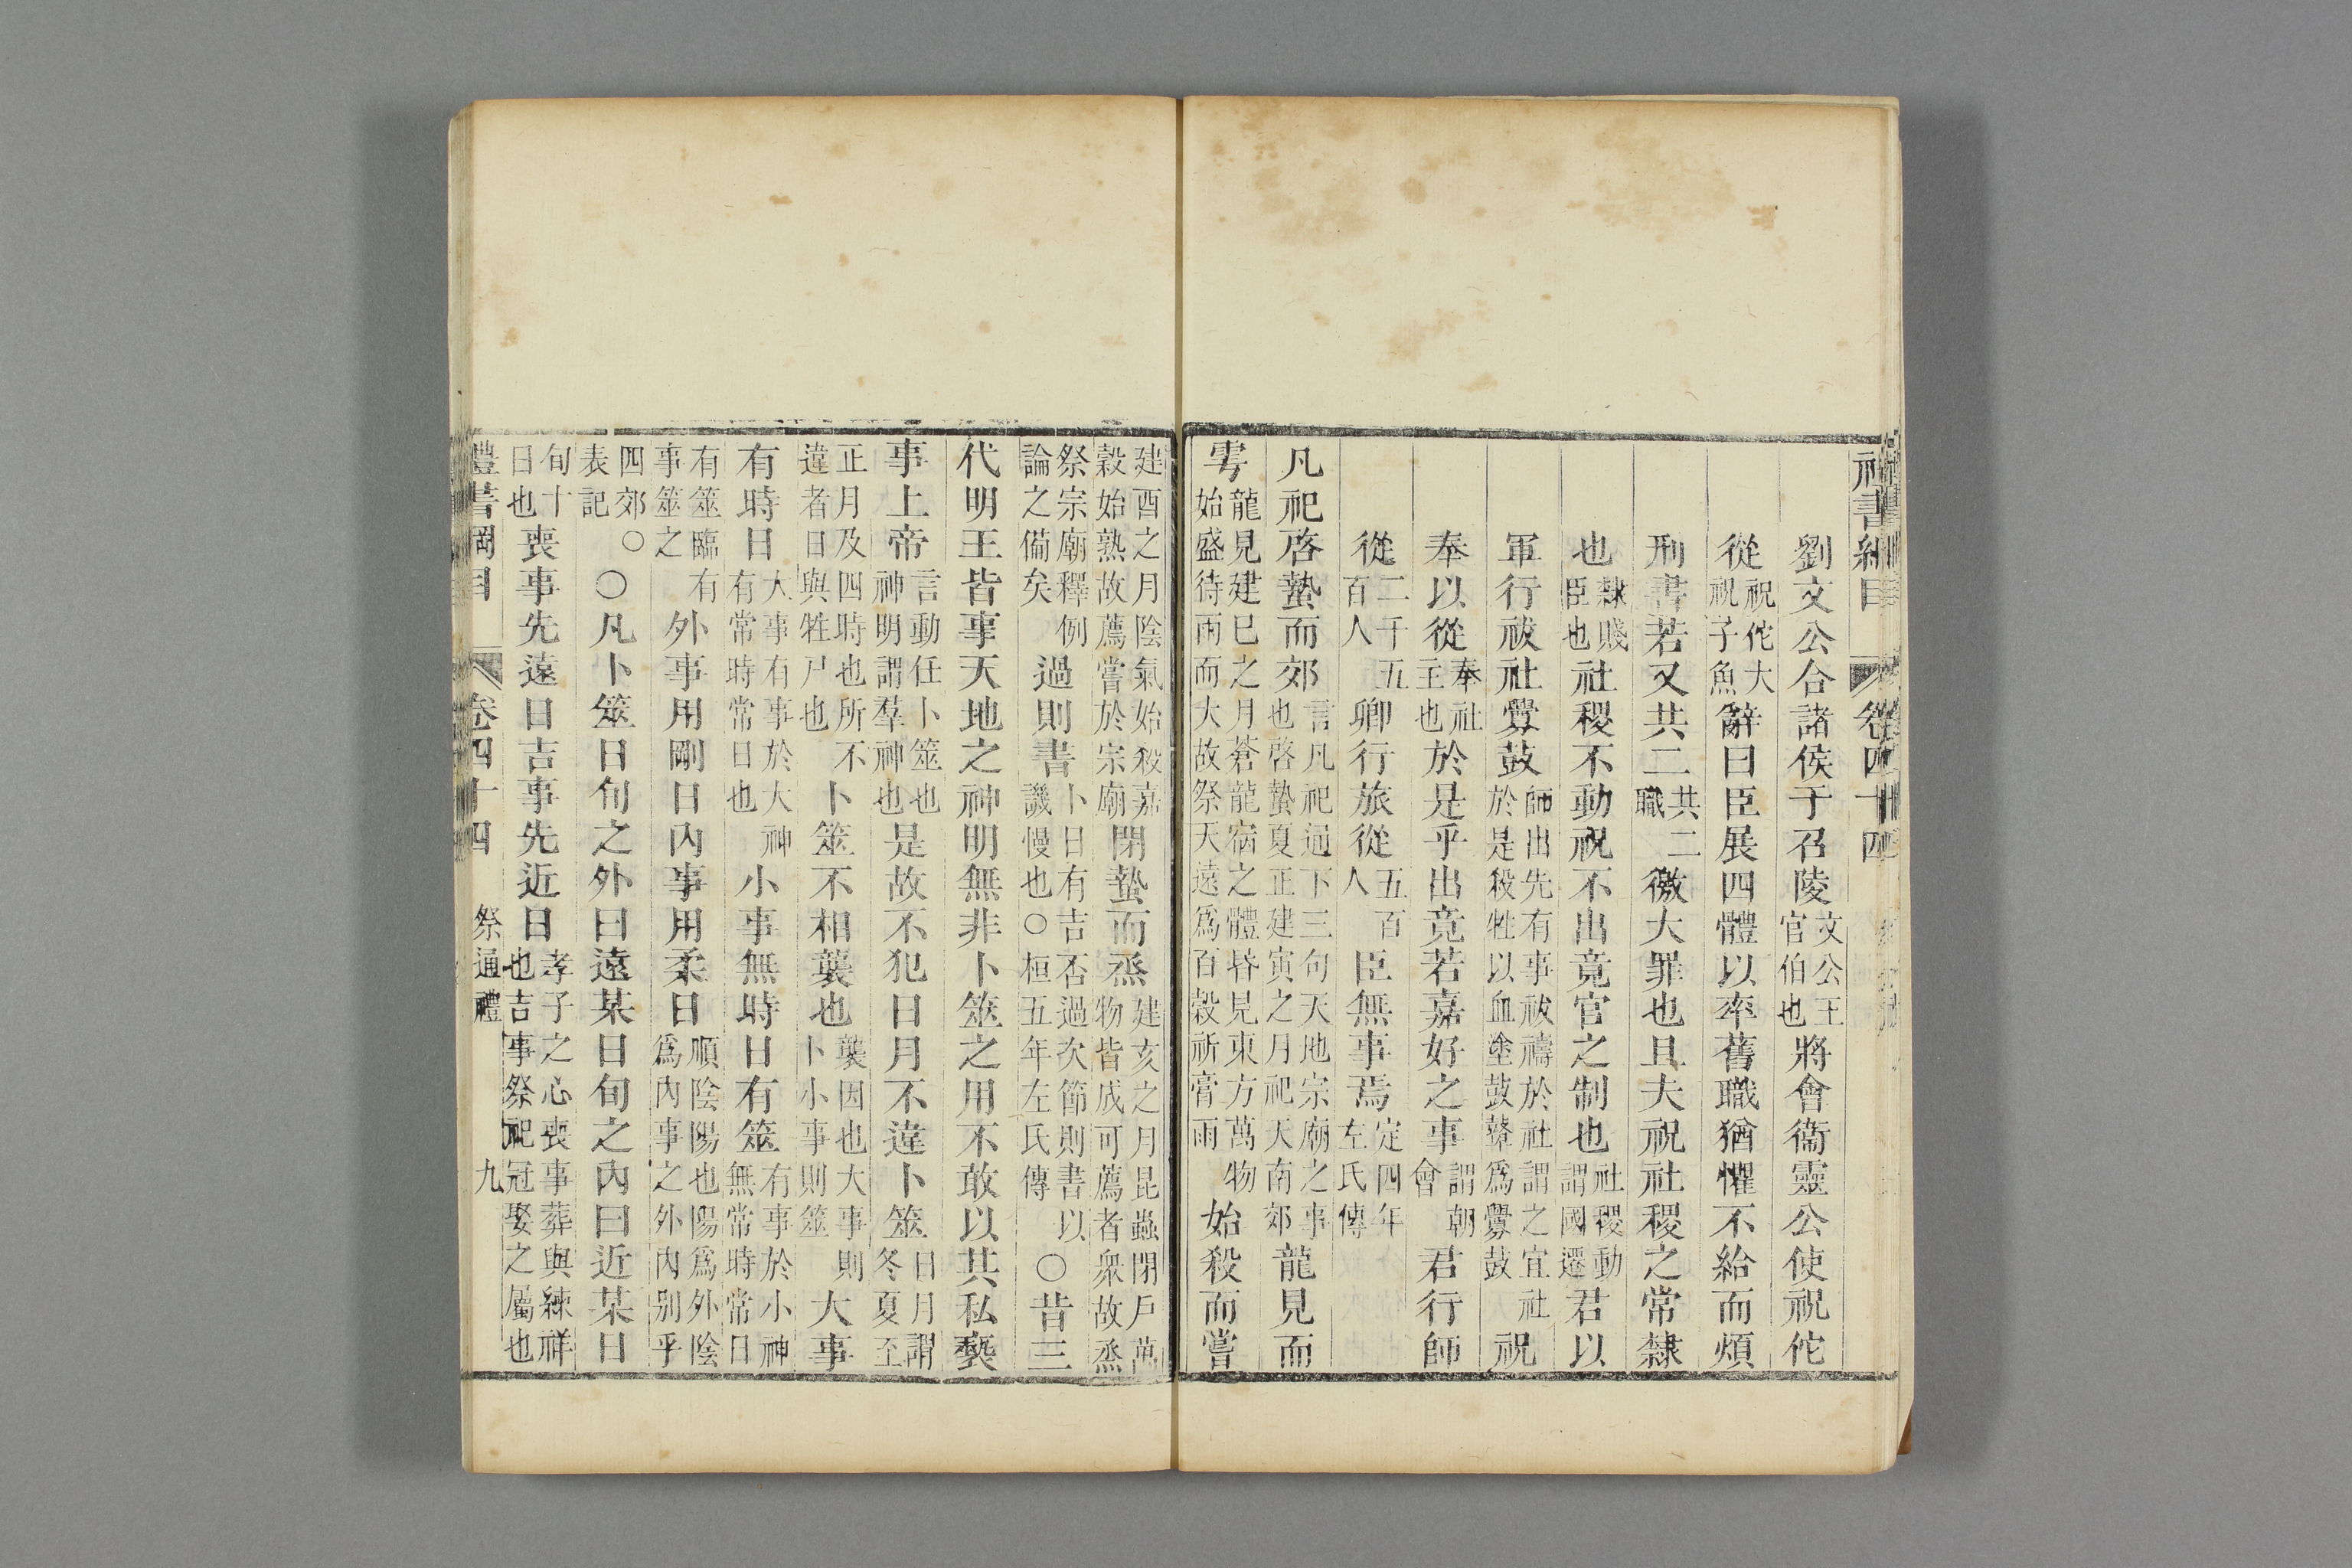 禮書綱目 卷四十四
劉文公合諸侯于召陵文公王官伯也將會衞靈公使祝佗
從祝佗大祝子魚辭曰臣展四體以率舊職猶懼不給而煩
刑書若又共二共二職徼大罪也且夫祝社稷之常隸
也隸賤臣也社稷不動祝不出竟官之制也社稷動謂國遷君以
軍行祓社釁鼓師出先有事祓禱於社謂之宜社於是殺牲以血塗鼓鼙爲釁鼓祝
奉以從奉社主也於是乎出竟若嘉好之事謂朝會君行師
從二千五百人卿行旅從五百人臣無事焉定四年左氏傳
凡祀啓蟄而郊言凡祀通下三句天地宗廟之事也啓蟄夏正建寅之月祀天南郊龍見而
雩龍見建巳之月蒼龍宿之體昏見東方萬物始盛待雨而大故祭天遠爲百穀祈膏雨始殺而嘗
建酉之月陰氣始殺嘉穀始熟故薦嘗於宗廟閉蟄而烝建亥之月昆蟲閉戶萬物皆成可薦者衆故烝
祭宗廟釋例論之備矣過則書卜日有吉否過次節則書以譏慢也○桓五年左氏傳○昔三
代明王皆事天地之神明無非卜筮之用不敢以其私褻
事上帝言動任卜筮也神明謂羣神也是故不犯日月不違卜筮日月謂冬夏至
正月及四時也所不違者日與牲尸也卜筮不相襲也襲因也大事則卜小事則筮大事
有時日大事有事於大神有常時常日也小事無時日有筮有事於小神無常時常日
有筮臨有事筮之外事用剛日內事用柔日順陰陽也陽爲外陰爲內事之外內別乎
四郊○表記○凡卜筮日旬之外曰遠某日旬之內曰近某日
旬十日也喪事先遠日吉事先近日孝子之心喪事葬與練祥也吉事祭祀冠娶之屬也
禮書綱目 卷四十四 祭通禮 九